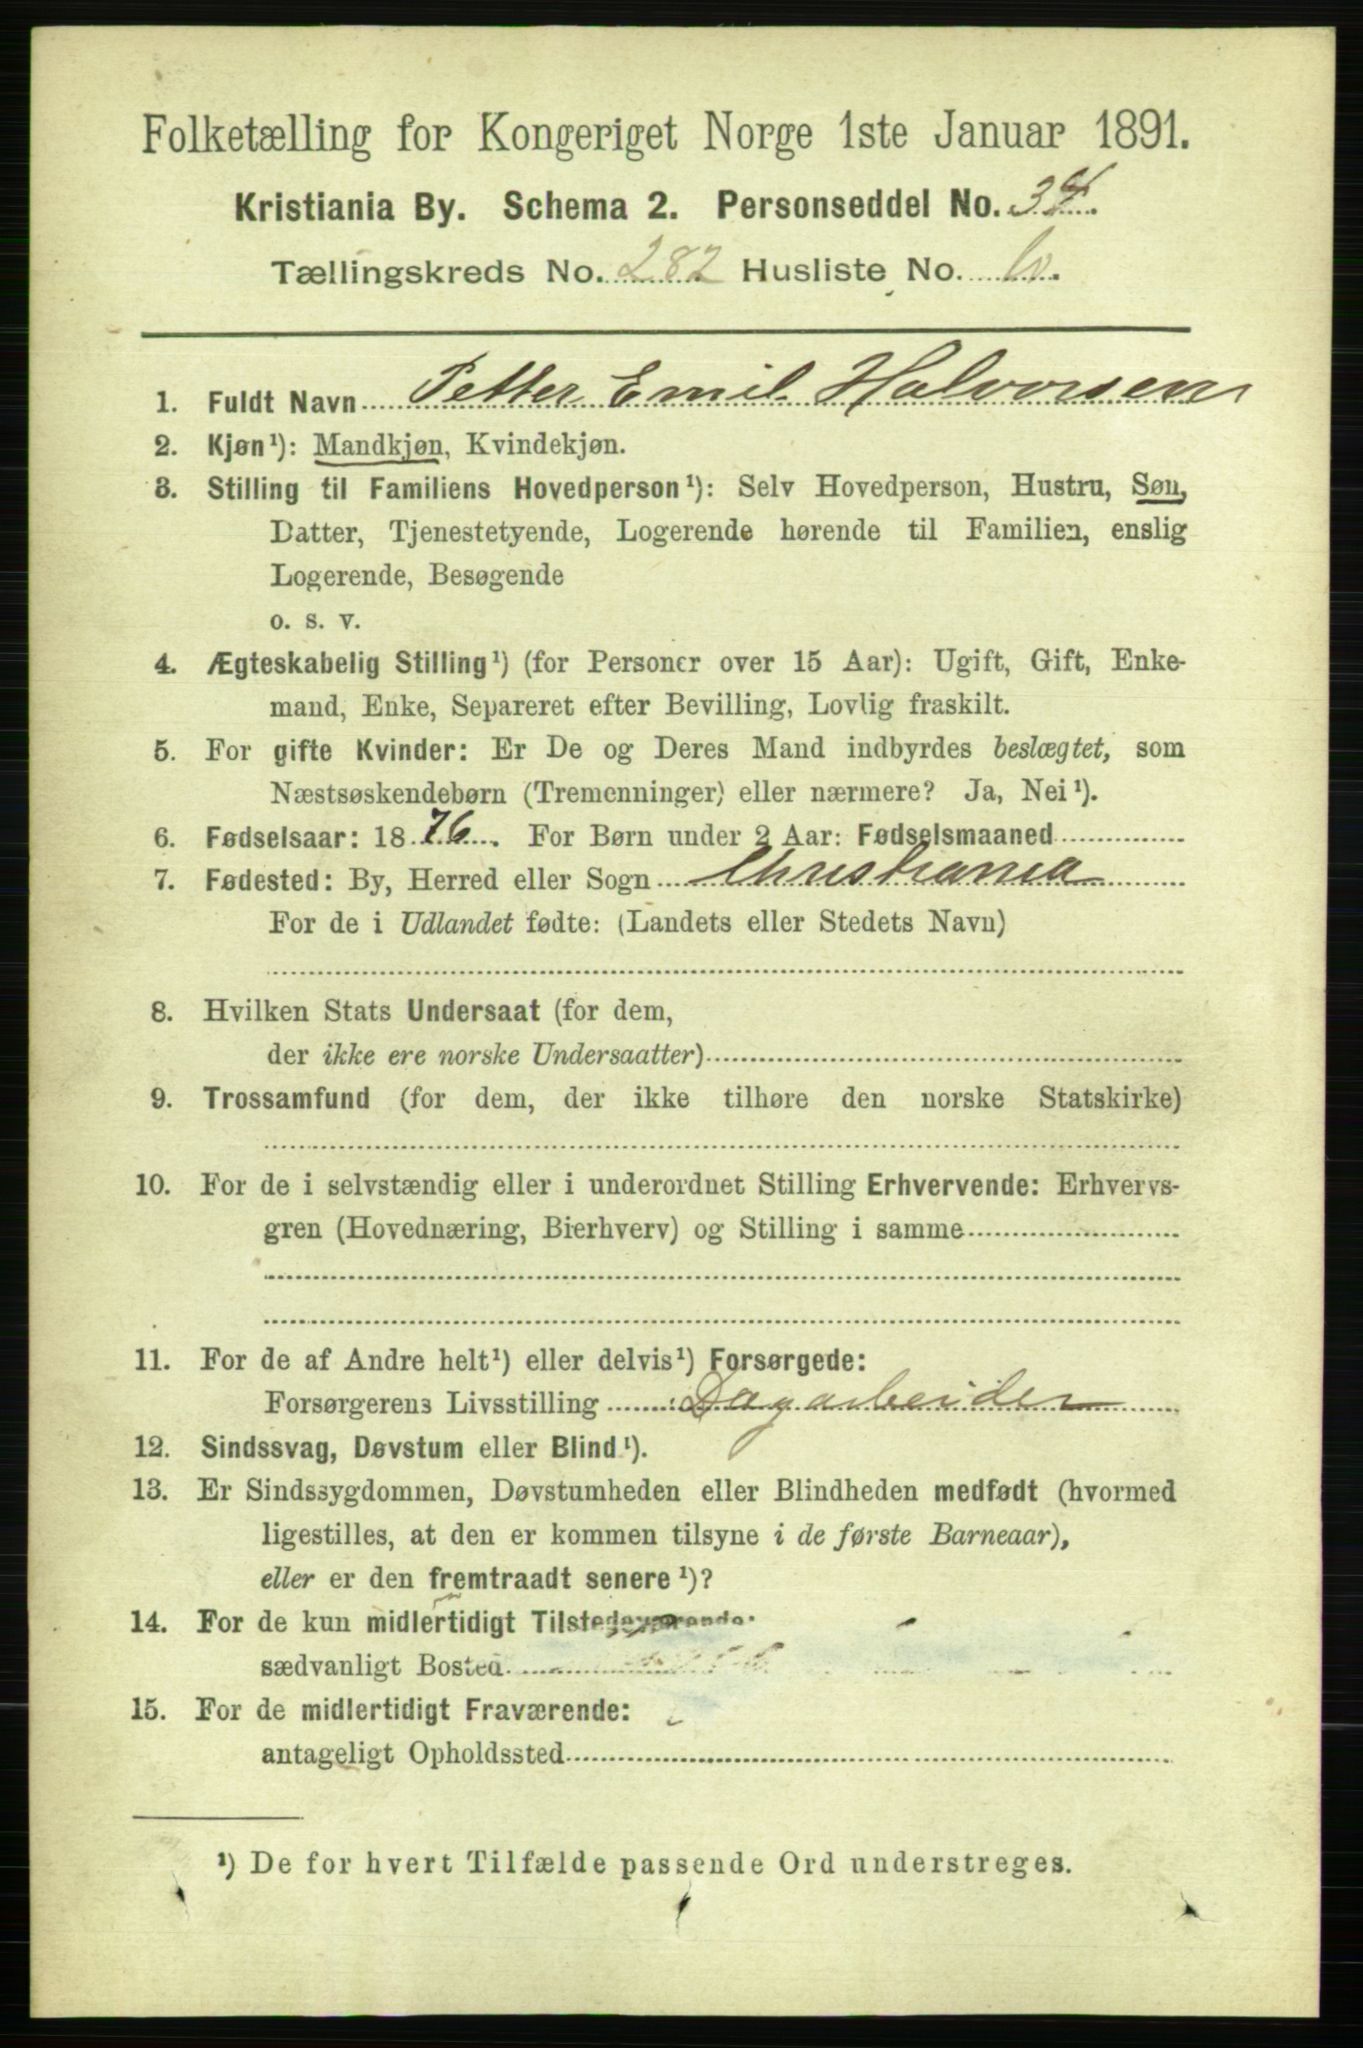 Folketælling for Kongeriget Norge 1ste Januar 1891.
Kristiania By. Schema 2. Personseddel No. 34.
Tællingskreds No. 282 Husliste No.
1. Fuldt Navn Petter Emil Halvorsen
2. Kjøn¹): Mandkjøn, Kvindekjøn.
3. Stilling til Familiens Hovedperson¹): Selv Hovedperson, Hustru, Søn,
Datter, Tjenestetyende, Logerende hørende til Familien, enslig
Logerende, Besøgende
o. s. v.
4. Ægteskabelig Stilling¹) (for Personer over 15 Aar): Ugift, Gift, Enke-
mand, Enke, Separeret efter Bevilling, Lovlig fraskilt.
5. For gifte Kvinder: Er De og Deres Mand indbyrdes beslægtet, som
Næstsøskendebørn (Tremenninger) eller nærmere? Ja, Nei¹).
6. Fødselsaar: 1876. For Børn under 2 Aar: Fødselsmaaned
7. Fødested: By, Herred eller Sogn Christiania
For de i Udlandet fødte: (Landets eller Stedets Navn)
8. Hvilken Stats Undersaat (for dem,
der ikke ere norske Undersaatter)
9. Trossamfund (for dem, der ikke tilhøre den norske Statskirke)
10. For de i selvstændig eller i underordnet Stilling Erhvervende: Erhvervs-
gren (Hovednæring, Bierhverv) og Stilling i samme
11. For de af Andre helt¹) eller delvis¹) Forsørgede:
Forsørgerens Livsstilling Dagarbeider
12. Sindssvag, Døvstum eller Blind¹).
13. Er Sindssygdommen, Døvstumheden eller Blindheden medfødt (hvormed
ligestilles, at den er kommen tilsyne i de første Barneaar),
eller er den fremtraadt senere¹)?
14. For de kun midlertidigt Tilstedeværende:
sædvanligt Bosted
15. For de midlertidigt Fraværende:
antageligt Opholdssted
¹) De for hvert Tilfælde passende Ord understreges.